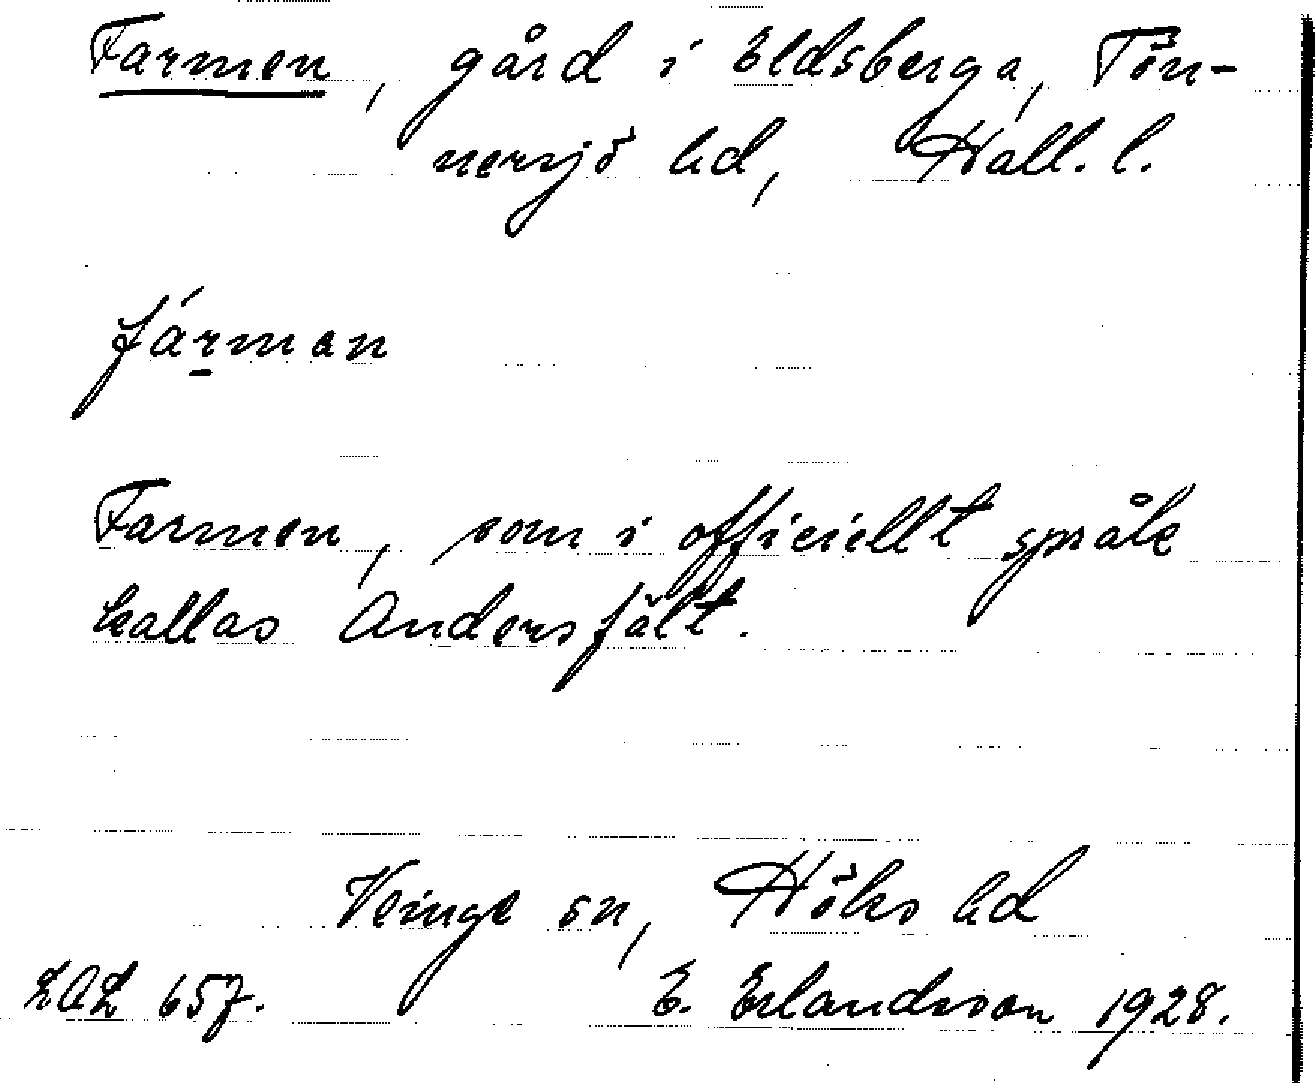 Farmen, gård i Eldsberga, Tön-
nersjö hd, Hall. l.
fármen
Farmen, som i officiellt språk
kallas Andersfält.
Veinge sn, Höks hd
LAL 657. E. Erlandsson 1928.